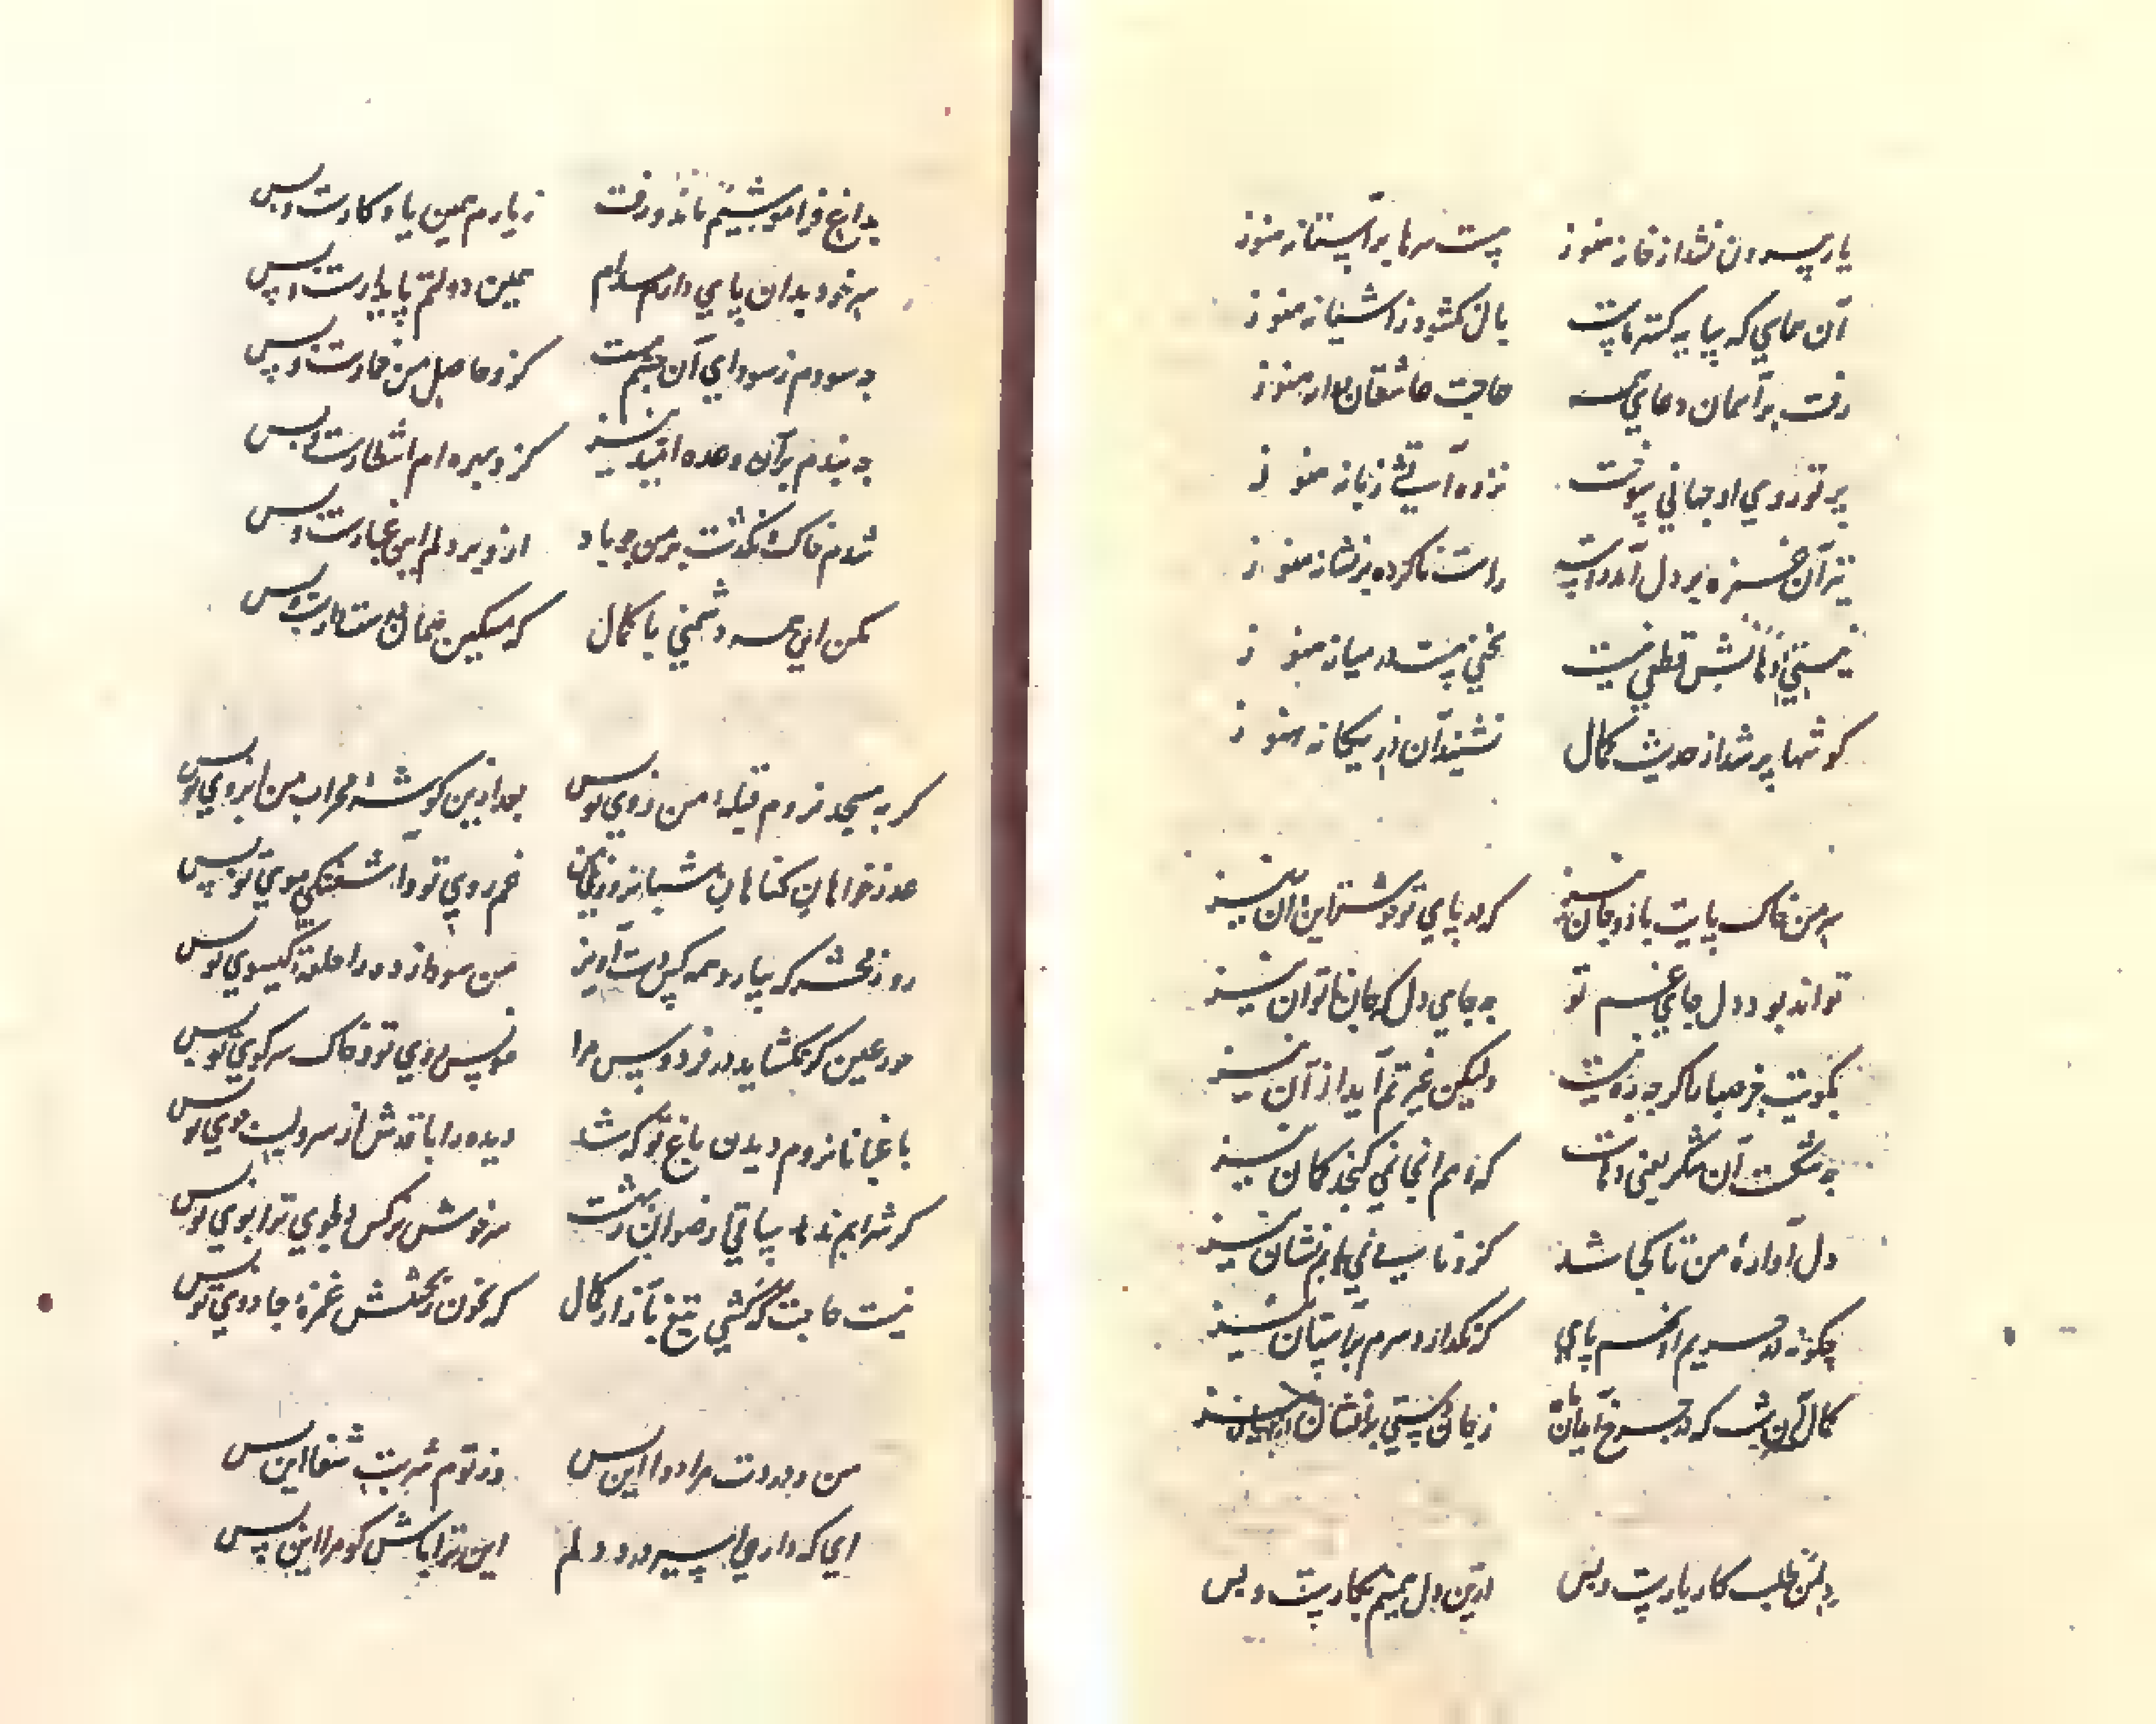 یار بیرون نشد از خانه هنوز هست سرها بر آستانه هنوز
آن همایی که سایه گستر ماست بال نگشود ز آشیانه هنوز
رفت بر آسمان دعای همه حاجت عاشقان روا نه هنوز
پرتو روی او جهانی سوخت نزده آتشی زبانه هنوز
تیر آن غمزه بر دل آمد راست راست ناکرده بر نشانه هنوز
نیستی از دهانش قطعی نیست سخنی هست در میانه هنوز
گوشها پر شد از حدیث کمال نشنید آن در یگانه هنوز
سر من خاک پایت باد و جان نیز که در پای تو خوشتر این و آن نیز
تواند بود دل جای غم تو چه جای دل که جان ناتوان نیز
بکویت جز صبا ما گرچه ره نیست ولیکن غیرتم آید از آن نیز
چه تنگست آن شکر یعنی دهانت که وهم آنجا نمی گنجد گمان نیز
دل آواره من تا کجا شد کزو نامی نمی یابم نشان نیز
چگونه در حریم او نهم پای که نگذارد سرم بر آستان نیز
کمال آن شب که در چرخ آیی
دلم طلب کار یارست و بس درین دل همینم بکارست و بس
بداغ فراموشیم ماند و رفت ز یارم همین یادگارست و بس
سر خود بدان پای دارم مدام همین دولتم پایدارست و بس
چه سودم ز سودای آن چشم مست کزو حاصل من خمارست و بس
چه بندم بر آن وعده امید نیز کزو بهره ام انتظارست و بس
شدم خاک و نگذشت بر من چو باد ازو بر دلم این غبارست و بس
مکن این همه دشمنی با کمال که مسکین همان دوستدارست و بس
گر به مسجد نروم قبله من روی تو بس بعد ازین گوشه محراب من ابروی تو بس
عذرخواهان گناهان شبانروزی من غم روی تو و آشفتگی موی تو بس
روز محشر که بیارد همه کس دست آویز من سودازده را حلقه گیسوی تو بس
حور عین گو نگشاید در فردوس مرا مونسم روی تو و خاک سر کوی تو بس
باغبانا نروم دیدن باغ تو که شد دیده را با قدش از سرو لب جوی تو بس
گر شرابم ندهد ساقی رضوان بهشت سرخوش نرگس جادوی ترا بوی تو بس
نیست حاجت که کشی تیغ بآزار کمال که بخون ریختنش غمزه جادوی تو بس
من و دردت مرا دوا این بس وز توم شربت شفا این بس
ای که داری بسر درد دلم این ترا باش گو مرا این بس